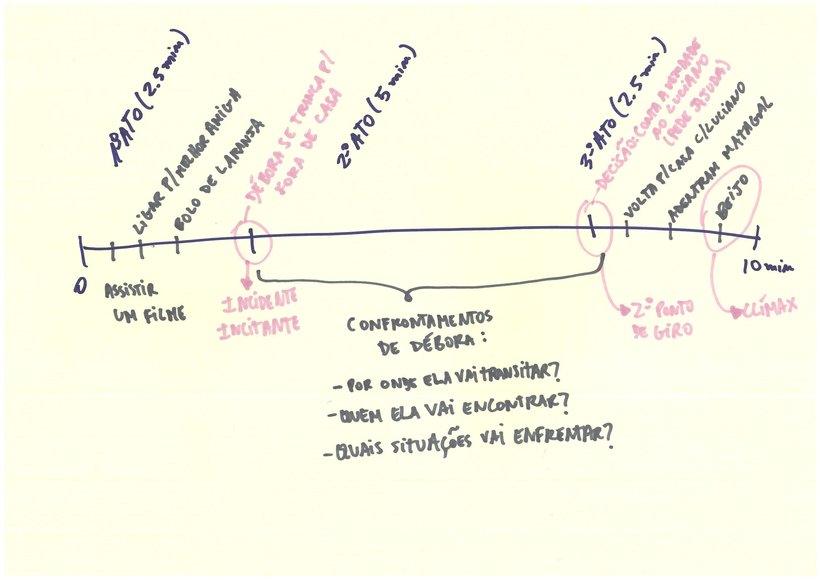 1º ATO (2.5 min)
LIGAR P/ MELHOR AMIGA
BOLO DE LARANJA
- DÉBORA SE TRANCA P/
FORA DE CASA
2º ATO (5 min)
3º ATO (2.5 min)
- DECISÃO: CONTA A VERDADE
AO LUCIANO
(PEDE AJUDA)
VOLTA P/ CASA C/ LUCIANO
ADENTRAM MATAGAL
BEIJO
0
10 min
ASSISTIR
UM FILME
INCIDENTE
INCITANTE
CONFRONTAMENTOS
DE DÉBORA:
- POR ONDE ELA VAI TRANSITAR?
- QUEM ELA VAI ENCONTRAR?
- QUAIS SITUAÇÕES VAI ENFRENTAR?
2º PONTO
DE GIRO
CLÍMAX